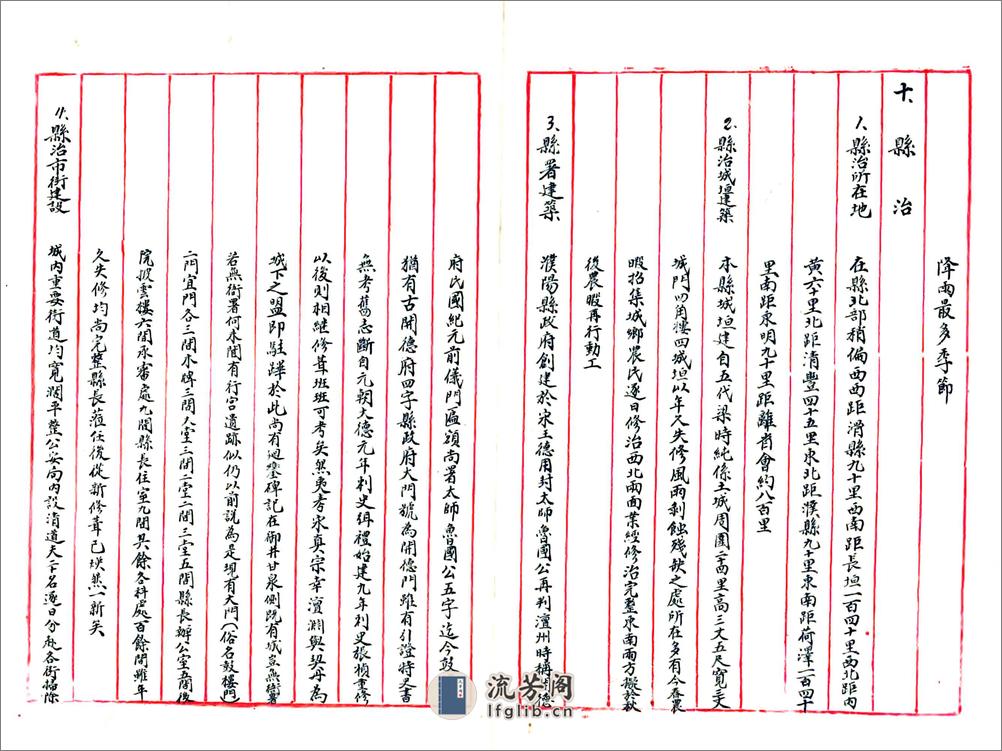 降雨最多季節
十、縣治
1、縣治所在地
在縣北部稍偏西西距滑縣九十里西南距長垣一百四十里西北距內
黃六十里北距清豐四十五里東北距濮縣九十里東南距荷澤一百四十
里南距東明九十里距離省會約八百里
2、縣治城垣建築
本縣城垣建自五代梁時純係土城周圍二十四里高三丈五尺寬二丈
城門四角樓四城垣以年久失修風雨剝蝕殘缺之處所在多有今春農
暇招集城鄉農民逐日修治西北兩面業經修治完整東南兩方擬於秋
後農暇再行動工
3、縣署建築
濮陽縣政府創建於宋王德用封太師魯國公再判澶州時稱開德
府民國紀元前儀門匾額尚署太師魯國公五字迄今鼓
猶有古開德府四字縣政府大門號為開德門雖有引證時文書
無考舊志斷自元朝大德元年刺史緝禮始建九年刺史張楨重修
以後則相繼修葺班班可考矣然夷考宋真宗幸澶淵與契丹為
城下之盟即駐蹕於此尚有迴鑾碑記在御井甘泉側既有城豈無衙署
若無衙署何來間有行宮遺跡似仍以前說為是現有大門(俗名鼓樓門)
二門宜門各三間木牌三間大堂三間二堂一間三堂五間縣長辦公室五間後
院披雲樓六間承審處九間縣長住室九間其餘各科處百餘間雖年
久失修均尚完整縣長蒞任後從新修葺已煥然一新矣
4、縣治市街建設
城內重要街道均寬濶平整公安局內設清道夫二十名逐日分赴各街掃除
流芳阁
lfglib.cn